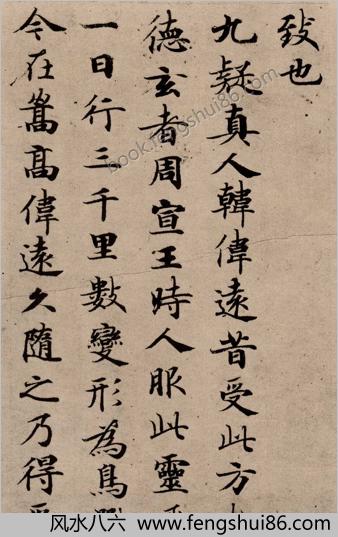 致也
九疑真人韓偉遠昔受此方
德玄者周宣王時人服此靈
一日行三千里數變形為鳥
今在嵩高偉遠久隨之乃得
book.fengshui86.com
风水八六 www.fengshui86.com